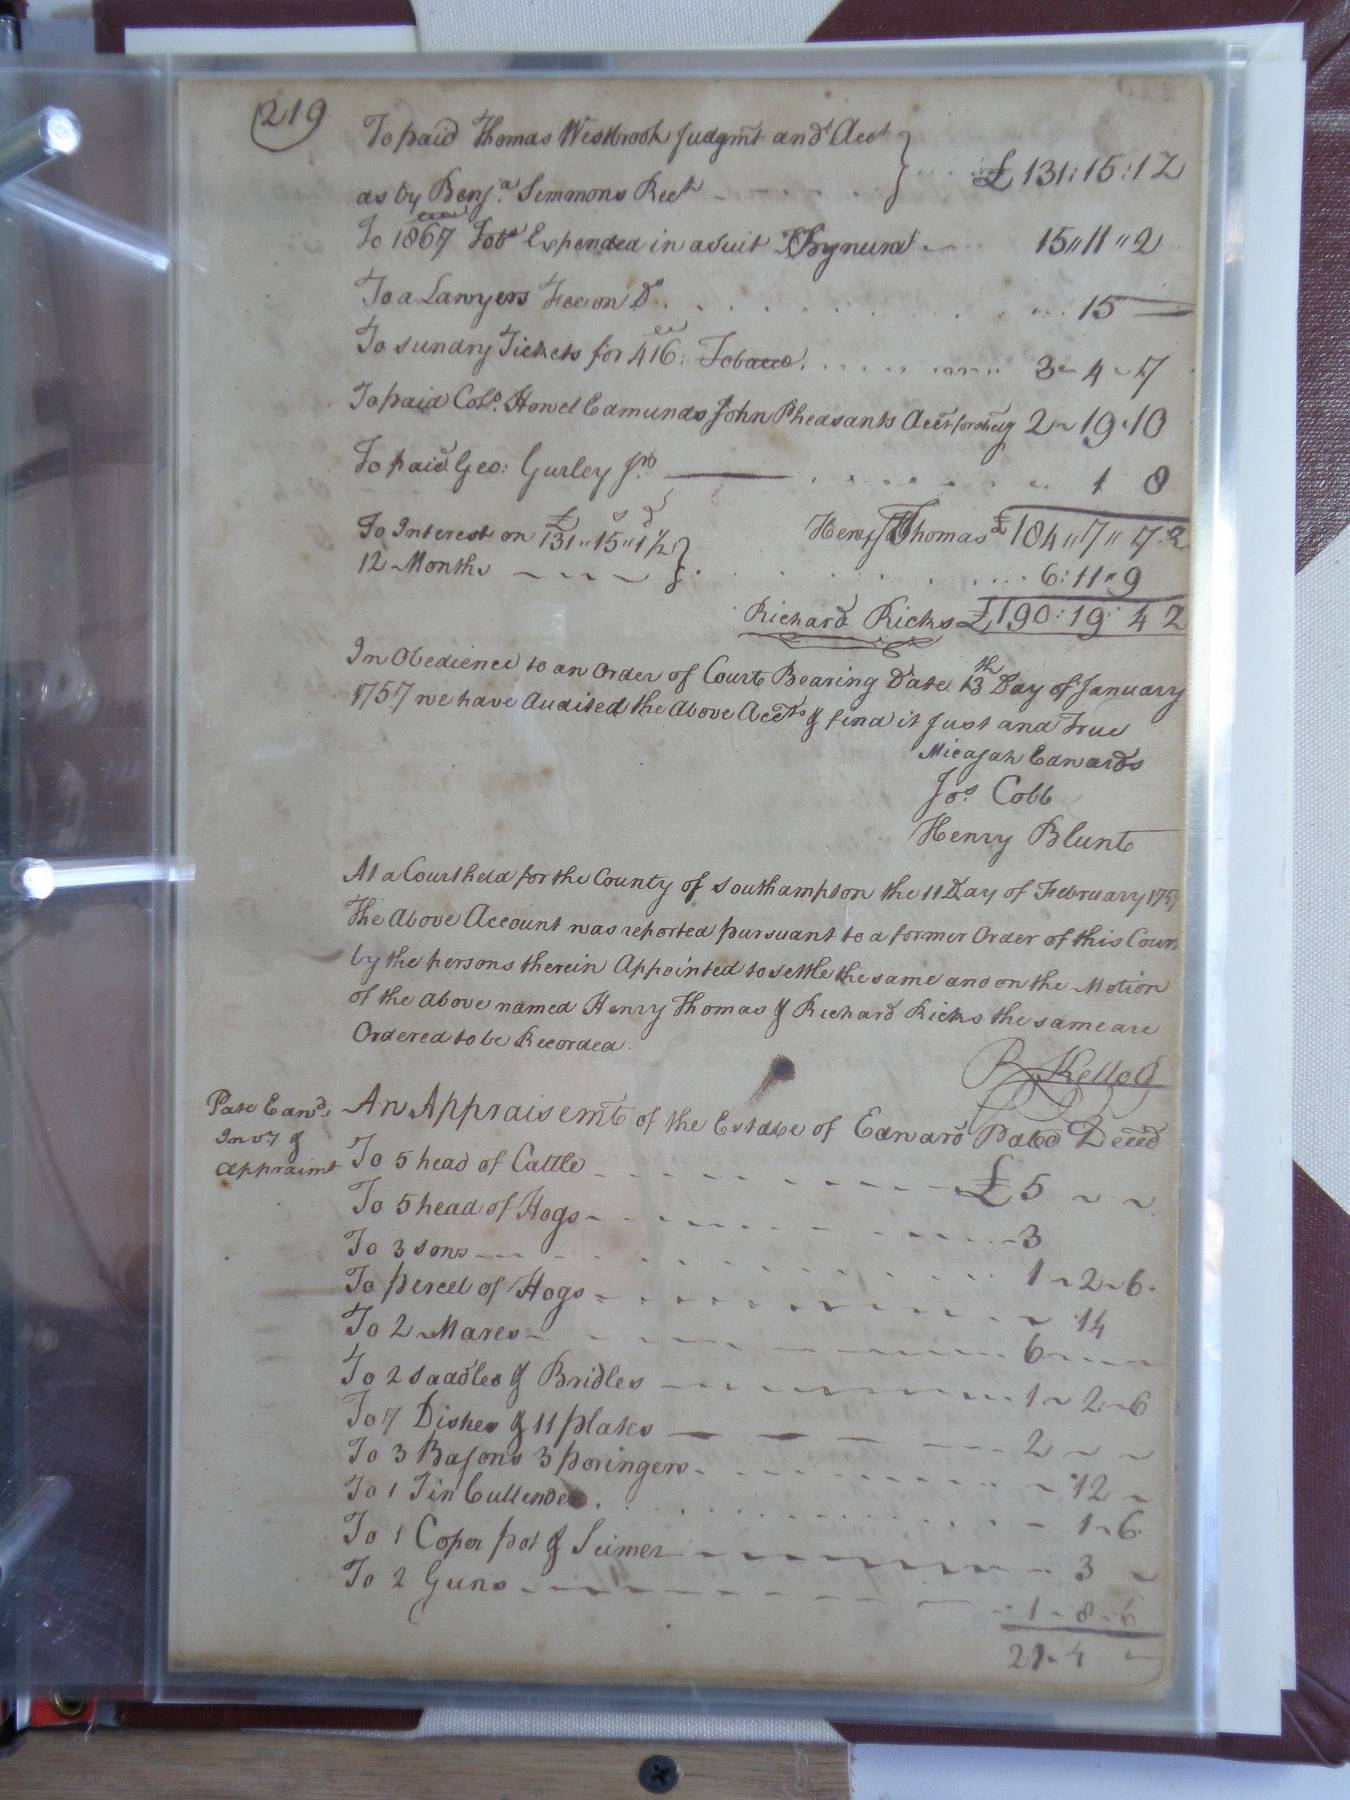 219
To paid Thomas Westbrook Judgmt and Acct
as by Benja. Simmons Rect } £131:15:1 2
To 1867 Tobo Expended in a Suit Bynum 15,,11,,2
To a Lawyers Fee on Do. 15
To sundry Tickets for 416 Tobacco 3-4-7
To paid Colo. Howel Edmunds John Pheasants Acct for 2-19-10
To paid Geo: Gurley Jr. 1 8
Henry Thomas £184,,7,,7 2
To Interest on £131,,15s,,1½d
12 Months } 6:11,,9
Richard Ricks £190:19:4 2
In Obedience to an Order of Court Bearing Date 13th Day of January
1757 we have Audited the Above Accts & find it Just and True
Micajah Edwards
Jos. Cobb
Henry Blunt
At a Court held for the County of Southampton the 11 Day of February 1757
The Above Account was reported pursuant to a former Order of this Court
by the persons therein Appointed to settle the same and on the Motion
of the above named Henry Thomas & Richard Ricks the same are
Ordered to be Recorded.
R Kello
Pate Edwd.
Invy &
Appraismt
An Appraisemt of the Estate of Edward Pate Deced
To 5 head of Cattle £5 ~ ~
To 5 head of Hogs 3
To 3 sows 1~2~6
To percell of Hogs 14
To 2 Mares 6
To 2 saddles & Bridles 1~2~6
To 7 Dishes & 11 plates 2 ~ ~
To 3 Basons 3 poringers 12 ~
To 1 Tin Cullender 1~6
To 1 Coper pot & Scimer 3 ~
To 2 Guns 1-8-6
21-4